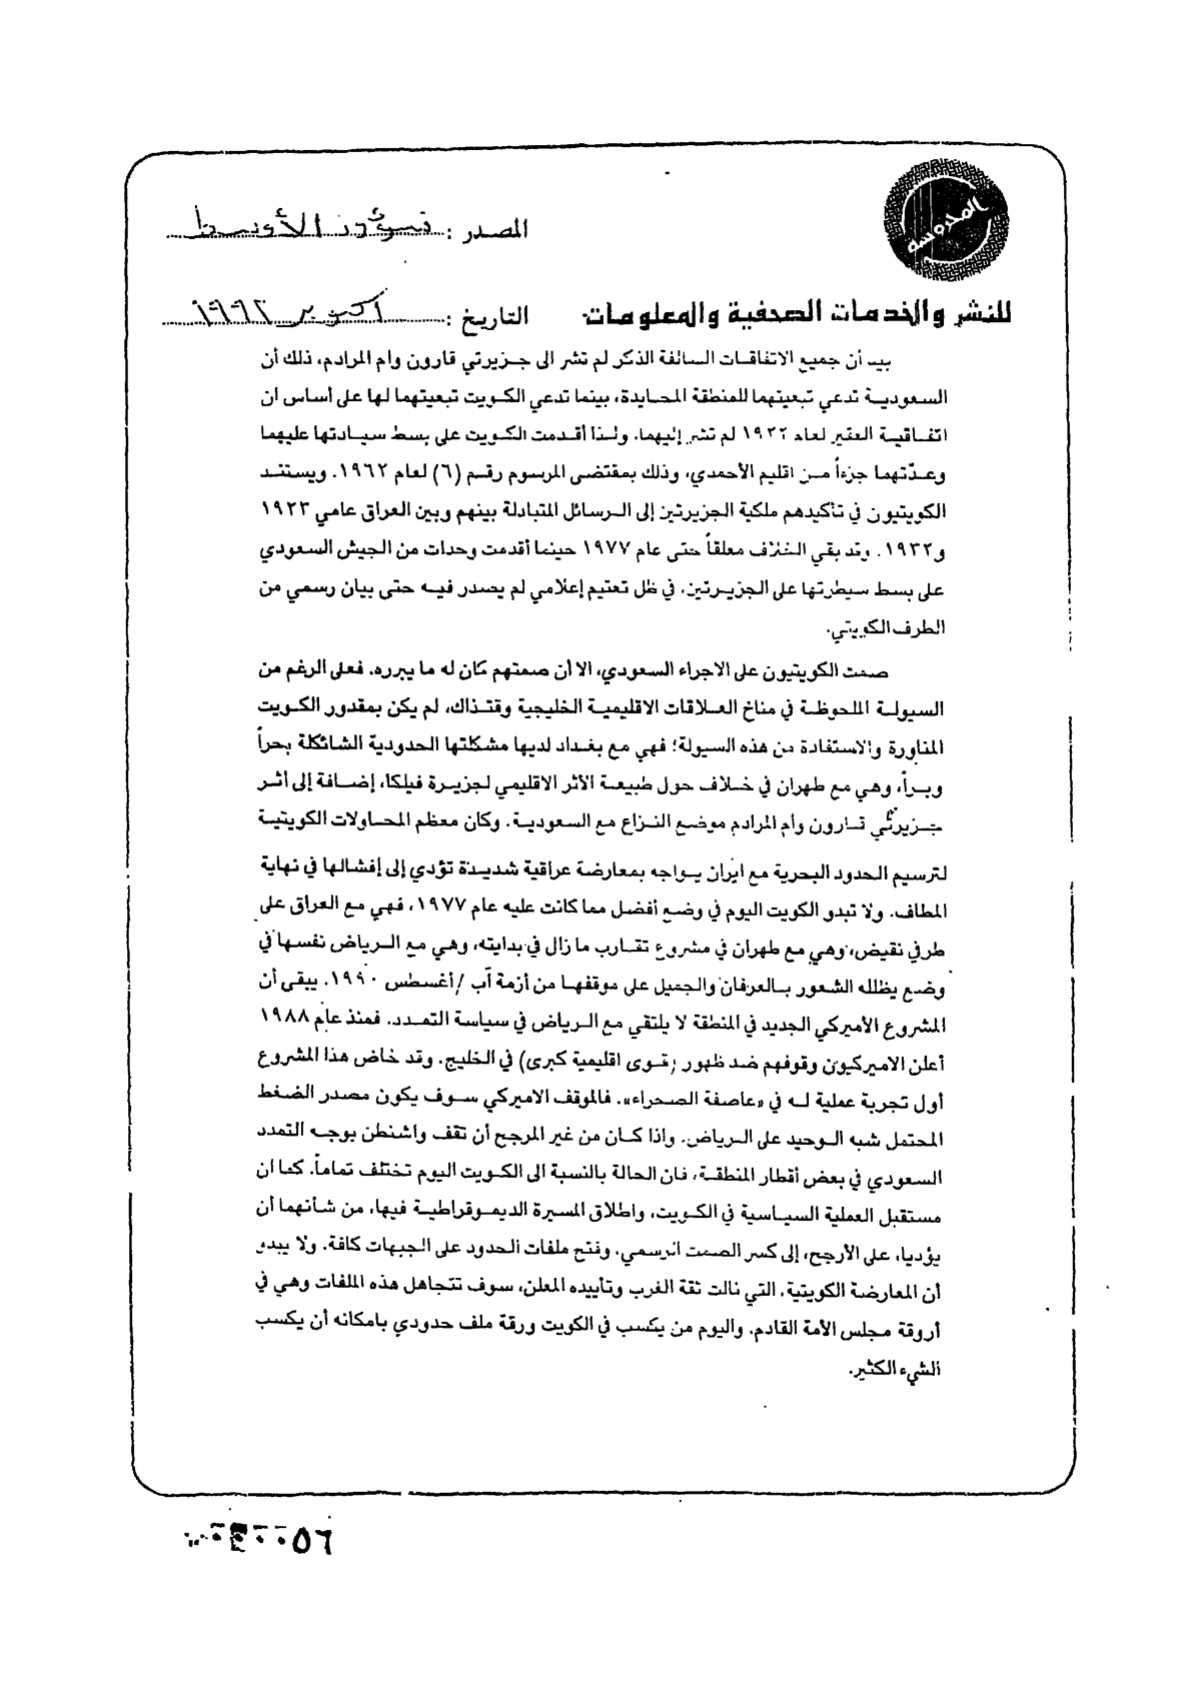 المحروسة
المصدر : شؤون الأوسط
للنشر والخدمات الصحفية والمعلومات
التاريخ : أكتوبر ١٩٩٢
بيد أن جميع الاتفاقات السالفة الذكر لم تشر الى جزيرتي قارون وام المرادم، ذلك أن
السعودية تدعي تبعيتهما للمنطقة المحايدة، بينما تدعي الكويت تبعيتهما لها على أساس ان
اتفاقية العقير لعام ١٩٢٢ لم تشر إليهما. ولذا أقدمت الكويت على بسط سيادتها عليهما
وعدّتهما جزءاً من اقليم الأحمدي، وذلك بمقتضى المرسوم رقم (٦) لعام ١٩٦٢. ويستند
الكويتيون في تأكيدهم ملكية الجزيرتين إلى الرسائل المتبادلة بينهم وبين العراق عامي ١٩٢٣
و١٩٣٢. وقد بقي الخلاف معلقاً حتى عام ١٩٧٧ حينما أقدمت وحدات من الجيش السعودي
على بسط سيطرتها على الجزيرتين، في ظل تعتيم إعلامي لم يصدر فيه حتى بيان رسمي من
الطرف الكويتي.
صمت الكويتيون على الاجراء السعودي، الا أن صمتهم كان له ما يبرره. فعلى الرغم من
السيولة الملحوظة في مناخ العلاقات الاقليمية الخليجية وقتذاك، لم يكن بمقدور الكويت
المناورة والاستفادة من هذه السيولة؛ فهي مع بغداد لديها مشكلتها الحدودية الشائكلة بحراً
وبراً، وهي مع طهران في خلاف حول طبيعة الأثر الاقليمي لجزيرة فيلكا، إضافة إلى أثر
جزيرتي قارون وأم المرادم موضع النزاع مع السعودية. وكان معظم المحاولات الكويتية
لترسيم الحدود البحرية مع ايران يواجه بمعارضة عراقية شديدة تؤدي إلى إفشالها في نهاية
المطاف. ولا تبدو الكويت اليوم في وضع أفضل مما كانت عليه عام ١٩٧٧، فهي مع العراق على
طرفي نقيض، وهي مع طهران في مشروع تقارب ما زال في بدايته، وهي مع الرياض نفسها في
وضع يظلله الشعور بالعرفان والجميل على موقفها من أزمة آب /أغسطس ١٩٩٠. يبقى أن
المشروع الأميركي الجديد في المنطقة لا يلتقي مع الرياض في سياسة التمدد. فمنذ عام ١٩٨٨
أعلن الاميركيون وقوفهم ضد ظهور (قوى اقليمية كبرى) في الخليج. وقد خاض هذا المشروع
أول تجربة عملية له في «عاصفة الصحراء». فالموقف الاميركي سوف يكون مصدر الضغط
المحتمل شبه الوحيد على الرياض. واذا كان من غير المرجح أن تقف واشنطن بوجه التمدد
السعودي في بعض أقطار المنطقة، فان الحالة بالنسبة الى الكويت اليوم تختلف تماماً. كما ان
مستقبل العملية السياسية في الكويت، واطلاق المسيرة الديموقراطية فيها، من شأنهما أن
يؤديا، على الأرجح، إلى كسر الصمت الرسمي، وفتح ملفات الحدود على الجبهات كافة. ولا يبدو
أن المعارضة الكويتية، التي نالت ثقة الغرب وتأييده المعلن، سوف تتجاهل هذه الملفات وهي في
أروقة مجلس الأمة القادم. واليوم من يكسب في الكويت ورقة ملف حدودي بامكانه أن يكسب
الشيء الكثير.